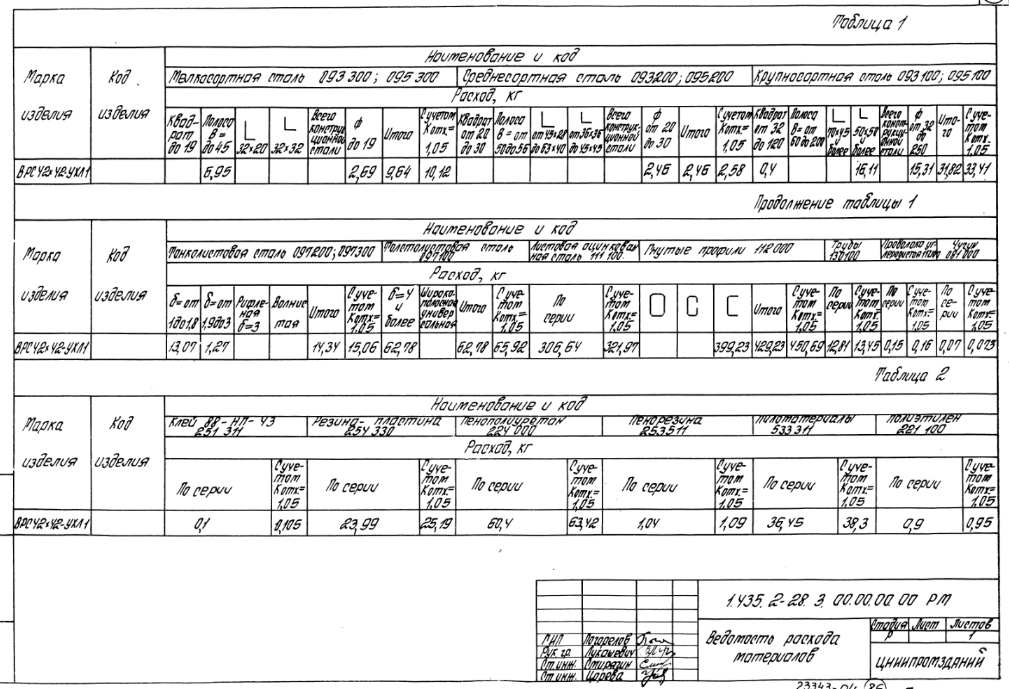 Таблица 1
Марка изделия
Код изделия
Наименование и код
Мелкосортная сталь 093 300; 095 300
Среднесортная сталь 093200; 095200
Крупносортная сталь 093100; 095100
Расход, кг
Квадрат до 19
Полоса В= до 45
32×20
32×32
Всего конструкционной стали
ф до 19
Итого
С учетом Котх.= 1,05
Квадрат от 20 до 30
Полоса В= от 50 до 56
от 45×28 до 63×40
от 36×36 до 45×45
Всего конструкционной стали
ф от 20 до 30
Итого
С учетом Котх= 1,05
Квадрат от 32 до 120
Полоса В= от 60 до 200
70×45 и более
50×50 и более
Всего конструкционной стали
ф от 32 до 250
Итого
С учетом Котх= 1,05
ВРС 42×42-УХЛ1 6,95 2,69 9,64 10,12 2,46 2,46 2,58 0,4 16,11 15,31 31,82 33,41
Продолжение таблицы 1
Марка изделия
Код изделия
Наименование и код
Тонколистовая сталь 097200; 097300
Толстолистовая сталь 097100
Листовая оцинкованная сталь 111 100
Гнутые профили 112000
Трубы 130100
Чугун
Расход, кг
δ= от 1 до 1,8
δ= от 1,9 до 3
Рифленая δ=3
Волнистая
Итого
С учетом Котх= 1,05
δ=4 и более
Широкополосная универсальная
Итого
С учетом Котх= 1,05
По серии
С учетом Котх= 1,05
Итого
С учетом Котх= 1,05
По серии
С учетом Котх= 1,05
По серии
С учетом Котх= 1,05
По серии
С учетом Котх= 1,05
ВРС 42×42-УХЛ1 13,07 1,27 14,34 15,06 62,78 62,78 65,92 306,64 321,97 399,23 429,23 450,69 12,81 13,45 0,15 0,16 0,07 0,073
Таблица 2
Марка изделия
Код изделия
Наименование и код
Клей 88-НП-43 251 311
Резина-пластина 254 330
Пенополиуретан 224 000
Пенорезина 253511
Пиломатериалы 533311
Полиэтилен 221 100
Расход, кг
По серии
С учетом Котх= 1,05
По серии
С учетом Котх= 1,05
По серии
С учетом Котх= 1,05
По серии
С учетом Котх= 1,05
По серии
С учетом Котх= 1,05
По серии
С учетом Котх= 1,05
ВРС 42×42-УХЛ1 0,1 0,105 23,99 25,19 60,4 63,42 1,04 1,09 36,45 38,3 0,9 0,95
1.435.2-28.3.00.00.00.00 РМ
Ведомость расхода материалов
Стадия Лист Листов
Р 1
ЦНИИПРОМЗДАНИЙ
ГИП
Рук. гр.
Ст. инж.
Ст. инж. Царева
23343-04 86